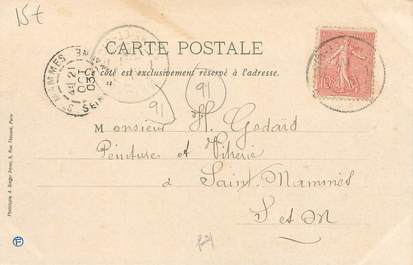 15t
CARTE POSTALE
Ce côté est exclusivement réservé à l'adresse.
ST MAMMES
21
OCT
03
91
91
Monsieur H. Godard
Peinture et Vitrerie
à Saint-Mammès
S et M
Phototypie A. Breger frères, 9, Rue Thénard, Paris